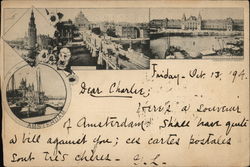 Friday - Oct. 13, '94.
Dear Charlie;
Here's a Souvenir
of Amsterdam. Shall have quite
a bill against you; ces cartes postales
sont très chères. - C. L.
AMSTERDAM